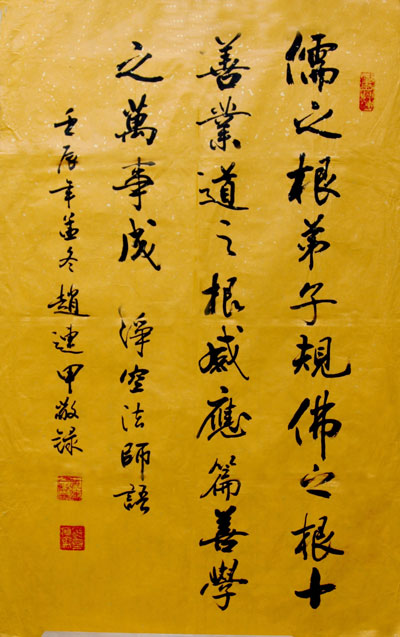 儒之根弟子規佛之根十
善業道之根感應篇善學
之萬事成 淨空法師語
壬辰年孟冬趙連甲敬錄